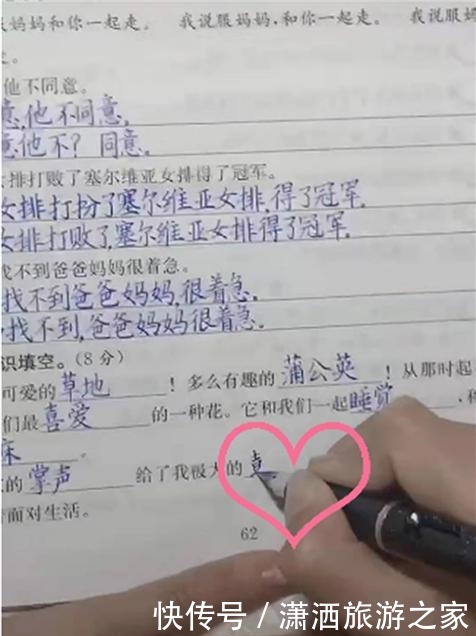 服妈妈和你一起走。 我说服妈妈,和你一起走。 我说服妈
他不同意。
意,他不同意,
意他不?同意。
女排打败了塞尔维亚女排得了冠军。
女排打扮了塞尔维亚女排,得了冠军,
女排打败了,塞尔维亚女排得了冠军.
找不到爸爸妈妈很着急。
找不到爸爸妈妈,很着急.
找不到,爸爸妈妈很着急.
识填空。(8分)
可爱的草地!多么有趣的蒲公英!从那时起
们最喜爱的一种花。它和我们一起睡觉,
床。
的掌声给了我极大的
面对生活。
62
快传号 / 潇洒旅游之家